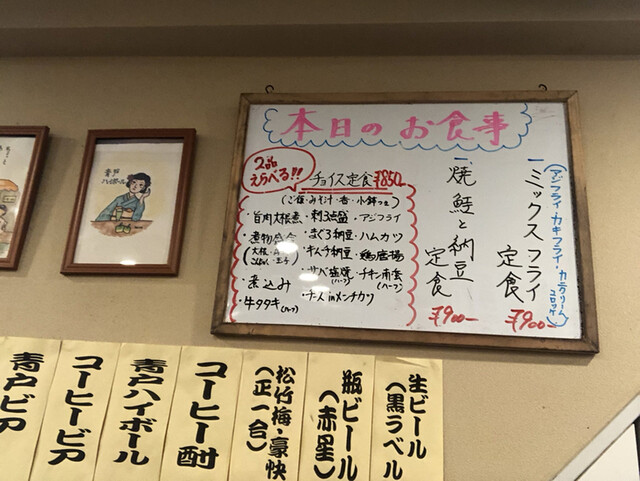 本日のお食事
2品
えらべる!!
チョイス定食 ¥850-
(ご飯・みそ汁・香・小鉢つき)
・旨肉大根煮
・刺3点盛
・アジフライ
・煮物盛合
・まぐろ納豆
・ハムカツ
・キムチ納豆
・煮込み
・サバ塩焼(ハーフ)
・チキン南蛮(ハーフ)
・牛タタキ(ハーフ)
・チーズinメンチカツ
一、焼鮭と納豆定食
¥900-
一、ミックスフライ定食
(アジフライ・カキフライ・カニクリームコロッケ)
¥900-
青戸
ハイボール
生ビール
(黒ラベル)
瓶ビール
(赤星)
松竹梅・豪快
(正一合)
コーヒー酎
青戸ハイボール
コーヒービア
青戸ビア